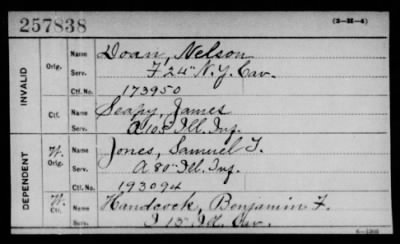 257838
(3-H-4)
INVALID
Orig. Name Doan, Nelson
Serv. F 24" N.Y. Cav.
Ctf. No. 173950
Ctf. Name Seapy, James
Serv. A 105 Ill. Inf.
DEPENDENT
W. Orig. Name Jones, Samuel T.
Serv. A 80" Ill. Inf.
Ctf. No. 193094
W. Ctf. Name Handcock, Benjamin F.
Serv. I 15 Cav.